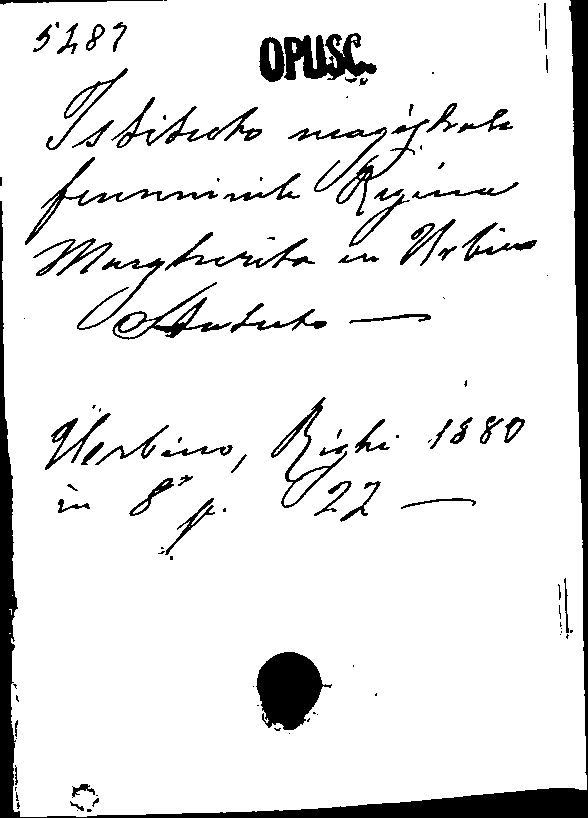 5287
OPUSC.
Istituto magistrale
femminile Regina
Margherita in Urbino
Statuto —
Urbino, Righi 1880
in 8° p. 22 —